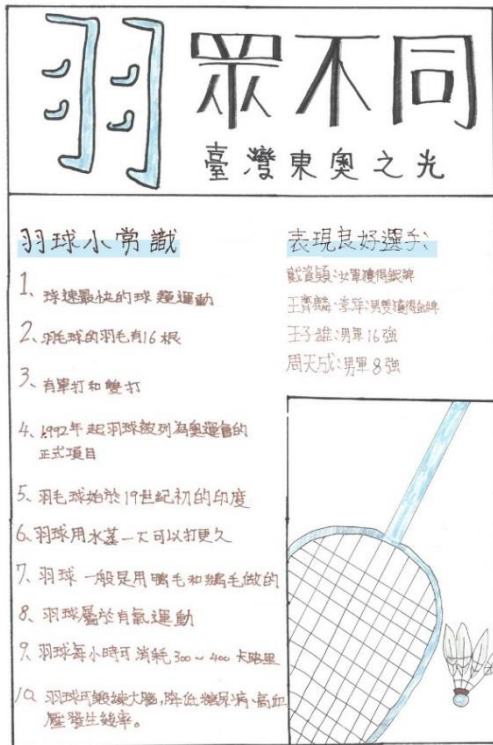 羽眾不同
臺灣東奧之光
羽球小常識
1、球速最快的球類運動
2、羽毛球的羽毛有16根
3、有單打和雙打
4、1992年起羽球被列為奧運會的
正式項目
5、羽毛球始於19世紀初的印度
6、羽球用水蒸一下可以打更久
7、羽球一般是用鴨毛和鵝毛做的
8、羽球屬於有氧運動
9、羽球每小時可消耗300~400卡路里
10、羽球可鍛鍊大腦,降低糖尿病、高血
壓發生機率。
表現良好選手:
戴資穎:女單獲得銀牌
王齊麟、李洋:男雙獲得金牌
王子維:男單16強
周天成:男單8強